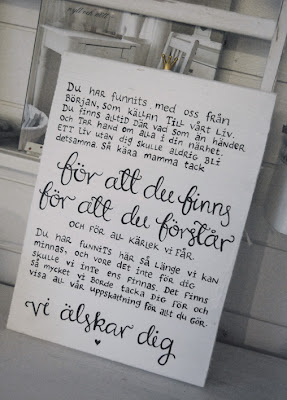 Du har funnits med oss från
början, som källan till vårt liv.
Du finns alltid där vad som än händer
och tar hand om alla i din närhet.
ETT liv utan dig skulle aldrig bli
detsamma. Så kära mamma tack
för att du finns
för att du förstår
och för all kärlek vi får.
Du har funnits här så länge vi kan
minnas, och vore det inte för dig
skulle vi inte ens finnas. Det finns
så mycket vi borde tacka dig för och
visa all vår uppskattning för allt du gör.
vi älskar dig